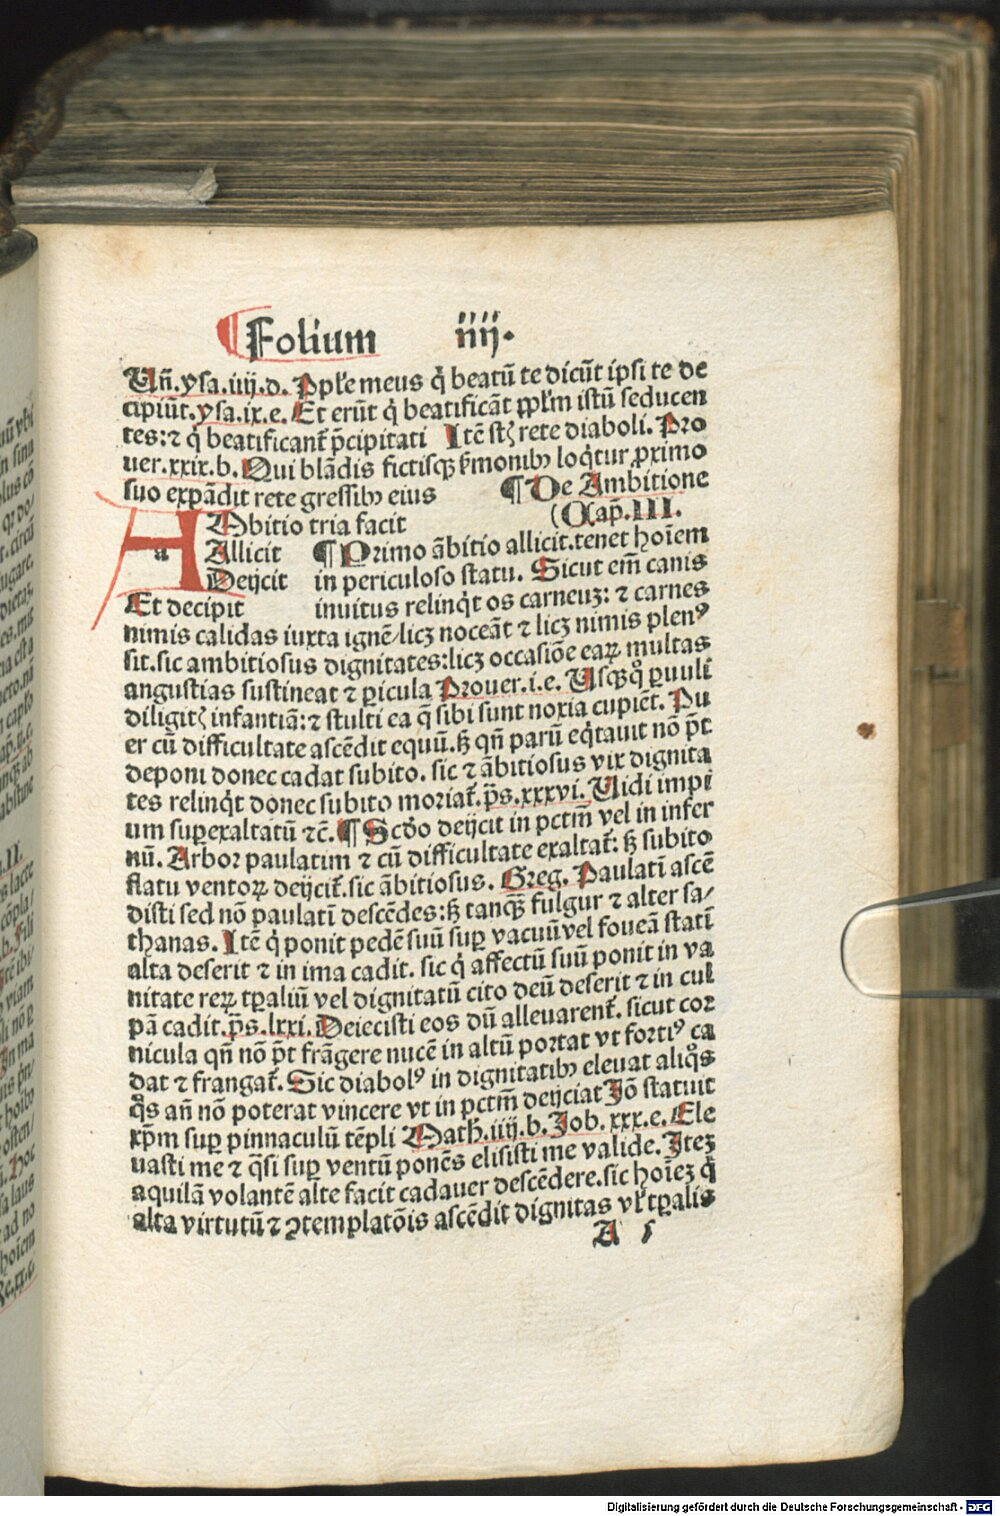 Folium iiij.
Uñ.ysa.iiij.d. Pple meus q̇ beatū te dicūt ipsi te de
cipiūt.ysa.ix.e. Et erūt q̇ beatificāt pplm istū seducen
tes:⁊ q̇ beatificant̄ p̄cipitati Itē stꝫ rete diaboli. Pro
uer.xxix.b. Qui blādis fictisqꝫ ẜmonibꝰ loq̇tur ꝓximo
suo expādit rete gressibꝰ eius ¶ De Ambitione
AMbitio tria facit (Cap̄.III.
Allicit ¶ Primo ābitio allicit.tenet hoīem
Deijcit in periculoso statu. Sicut em̄ canis
Et decipit inuitus relinq̇t os carneuꝫ: ⁊ carnes
nimis calidas iuxta ignē/licꝫ noceāt ⁊ licꝫ nimis plenꝰ
sit.sic ambitiosus dignitates:licꝫ occasiōe eaꝝ multas
angustias sustineat ⁊ ꝑicula Prouer.i.e. Usqꝫq̊ ꝑuuli
diligitꝫ infantiā:⁊ stulti ea q̄ sibi sunt noxia cupiēt. Pu
er cū difficultate ascēdit equū.ꝫ qn̄ parū eq̇tauit nō p̄t
deponi donec cadat subito. sic ⁊ ābitiosus vix dignita
tes relinq̇t donec subito moriat̄.p̄s.xxxvi. Uidi impi
um suꝑexaltatū ⁊c̄. ¶ Scd̄o deijcit in pctm̄ vel in infer
nū. Arbor paulatim ⁊ cū difficultate exaltat̄: ꝫ subito
flatu ventoꝝ deijcit̄.sic ābitiosus. Greg. Paulatī ascē
disti sed nō paulatī descēdes:ꝫ tanqꝫ̄ fulgur ⁊ alter sa/
thanas. Itē q̇ ponit pedē suū suꝑ vacuū vel foueā statī
alta deserit ⁊ in ima cadit. sic q̇ affectū suū ponit in va
nitate reꝝ tꝑaliū vel dignitatū cito deū deserit ⁊ in cul
pā cadit.p̄s.lxxi. Deiecisti eos dū alleuarent̄. sicut cor
nicula qn̄ nō p̄t frāgere nucē in altū portat vt fortiꝰ ca
dat ⁊ frangat̄. Sic diabolꝰ in dignitatibꝰ eleuat aliq̊s
q̊s an̄ nō poterat vincere vt in pctm̄ deijciat Iō statuit
xp̄m suꝑ pinnaculū tēpli Math̄.iiij.b. Job.xxx.e. Ele
uasti me ⁊ q̄si suꝑ ventū ponēs elisisti me valide. Iteꝫ
aquilā volantē alte facit cadauer descēdere.sic hoīeꝫ q̇
alta virtutū ⁊ ꝯtemplatōis ascēdit dignitas vl̄ tꝑalis
A 5
Digitalisierung gefördert durch die Deutsche Forschungsgemeinschaft - DFG